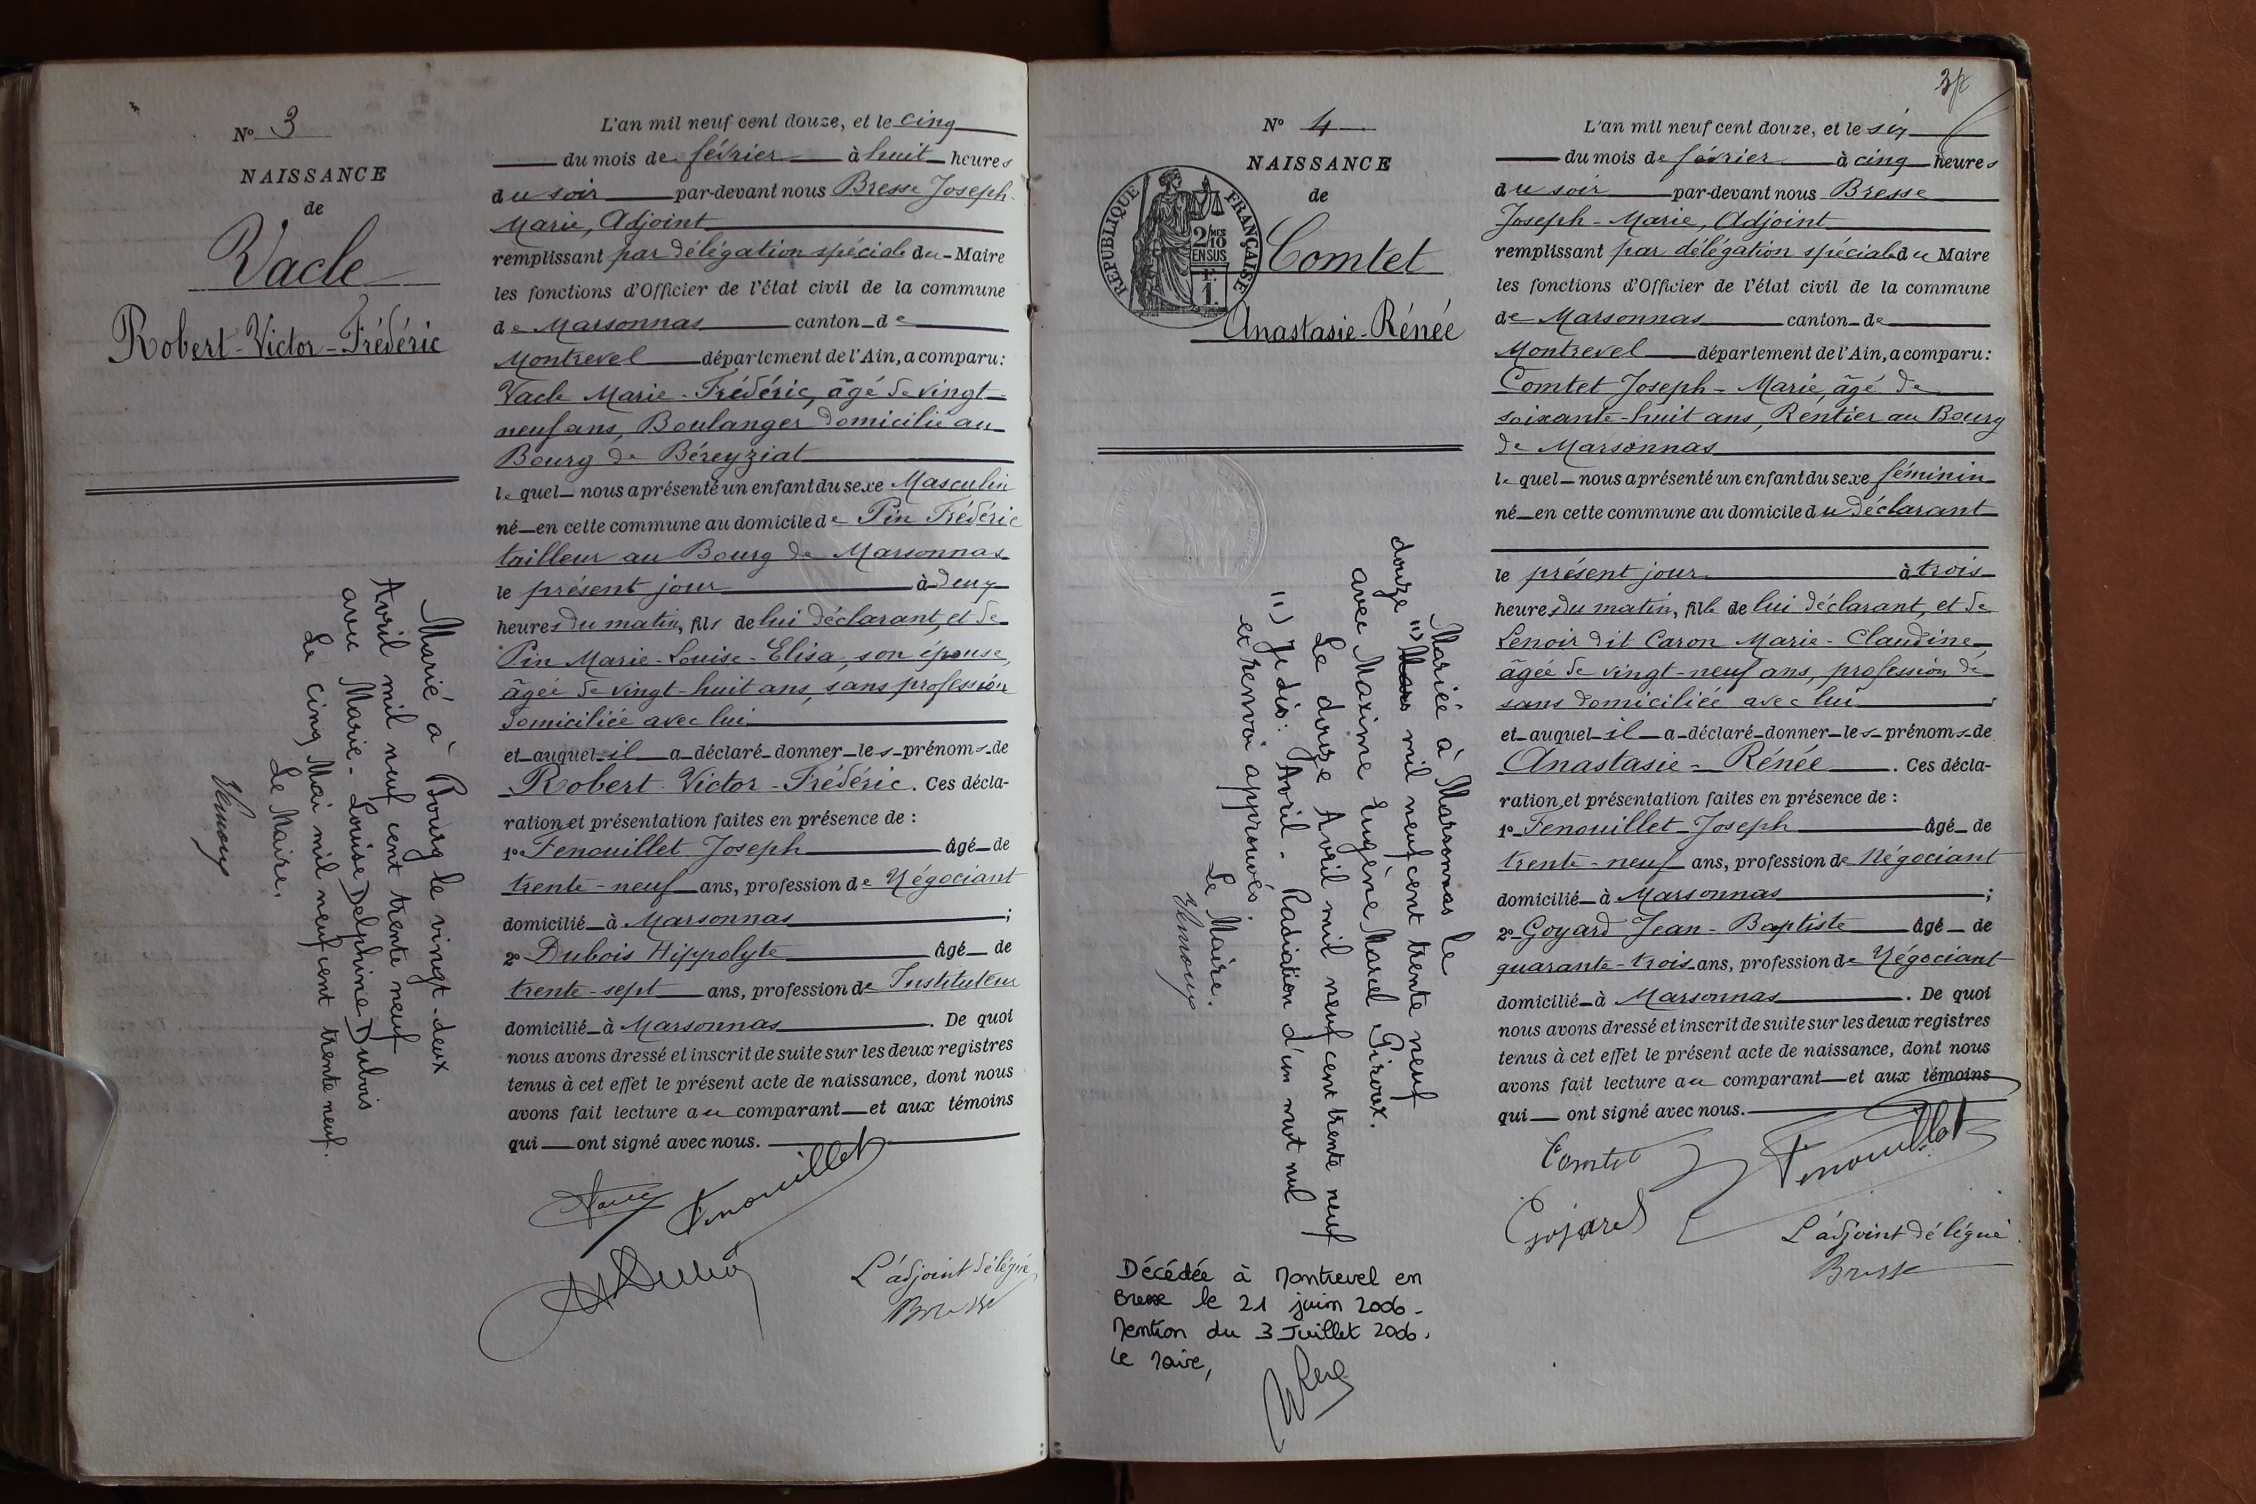 N° 3
NAISSANCE
de
Vacle
Robert-Victor-Frédéric
Marié à Bourg le vingt-deux
Avril mil neuf cent trente neuf
avec Marie-Louise Delphine Dubois
Le cinq Mai mil neuf cent trente neuf.
Le Maire,
L'an mil neuf cent douze, et le cinq
du mois de février à huit heures
du soir par-devant nous Bresse Joseph-
Marie, Adjoint
remplissant par délégation spéciale du Maire
les fonctions d'Officier de l'état civil de la commune
de Marsonnas canton de
Montrevel département de l'Ain, a comparu:
Vacle Marie-Frédéric, âgé de vingt-
neuf ans, Boulanger domicilié au
Bourg de Béreyziat
lequel nous a présenté un enfant du sexe Masculin
né en cette commune au domicile de Pin Frédéric
tailleur au Bourg de Marsonnas
le présent jour à deux
heures du matin, fils de lui déclarant, et de
Pin Marie-Louise-Elisa, son épouse,
âgée de vingt-huit ans, sans profession
domiciliée avec lui
et auquel il a déclaré donner les prénoms de
Robert-Victor-Frédéric. Ces décla-
ration et présentation faites en présence de :
1° Fenouillet Joseph âgé de
trente-neuf ans, profession de Négociant
domicilié à Marsonnas ;
2° Dubois Hippolyte âgé de
trente-sept ans, profession de Instituteur
domicilié à Marsonnas . De quoi
nous avons dressé et inscrit de suite sur les deux registres
tenus à cet effet le présent acte de naissance, dont nous
avons fait lecture au comparant et aux témoins
qui ont signé avec nous.
Fenouillet
L'adjoint délégué
Bresse
3
N° 4
NAISSANCE
de
RÉPUBLIQUE FRANÇAISE
2/10MES
EN SUS
1F.
Comtet
Anastasie-Rénée
Mariée à Marsonnas le
douze 11) Mars mil neuf cent trente neuf
avec Maxime Eugène Marcel Giroux.
Le douze Avril mil neuf cent trente neuf
11) Je dis: Avril. Radiation d'un mot nul
et renvoi approuvés.
Le Maire.
Décédée à Montrevel en
Bresse le 21 juin 2006.
Mention du 3 Juillet 2006.
Le Maire,
L'an mil neuf cent douze, et le six
du mois de février à cinq heures
du soir par-devant nous Bresse
Joseph-Marie, Adjoint
remplissant par délégation spéciale du Maire
les fonctions d'Officier de l'état civil de la commune
de Marsonnas canton de
Montrevel département de l'Ain, a comparu:
Comtet Joseph-Marie, âgé de
soixante-huit ans, Rentier au Bourg
de Marsonnas
lequel nous a présenté un enfant du sexe féminin
né en cette commune au domicile du déclarant
le présent jour à trois
heures du matin, fille de lui déclarant, et de
Lenoir dit Caron Marie-Claudine
âgée de vingt-neuf ans, profession de
sans domiciliée avec lui ;
et auquel il a déclaré donner les prénoms de
Anastasie-Rénée . Ces décla-
ration et présentation faites en présence de :
1° Fenouillet Joseph âgé de
trente-neuf ans, profession de Négociant
domicilié à Marsonnas ;
2° Goyard Jean-Baptiste âgé de
quarante-trois ans, profession de Négociant
domicilié à Marsonnas . De quoi
nous avons dressé et inscrit de suite sur les deux registres
tenus à cet effet le présent acte de naissance, dont nous
avons fait lecture au comparant et aux témoins
qui ont signé avec nous.
Comtet
Fenouillet
Goyard
L'adjoint délégué
Bresse